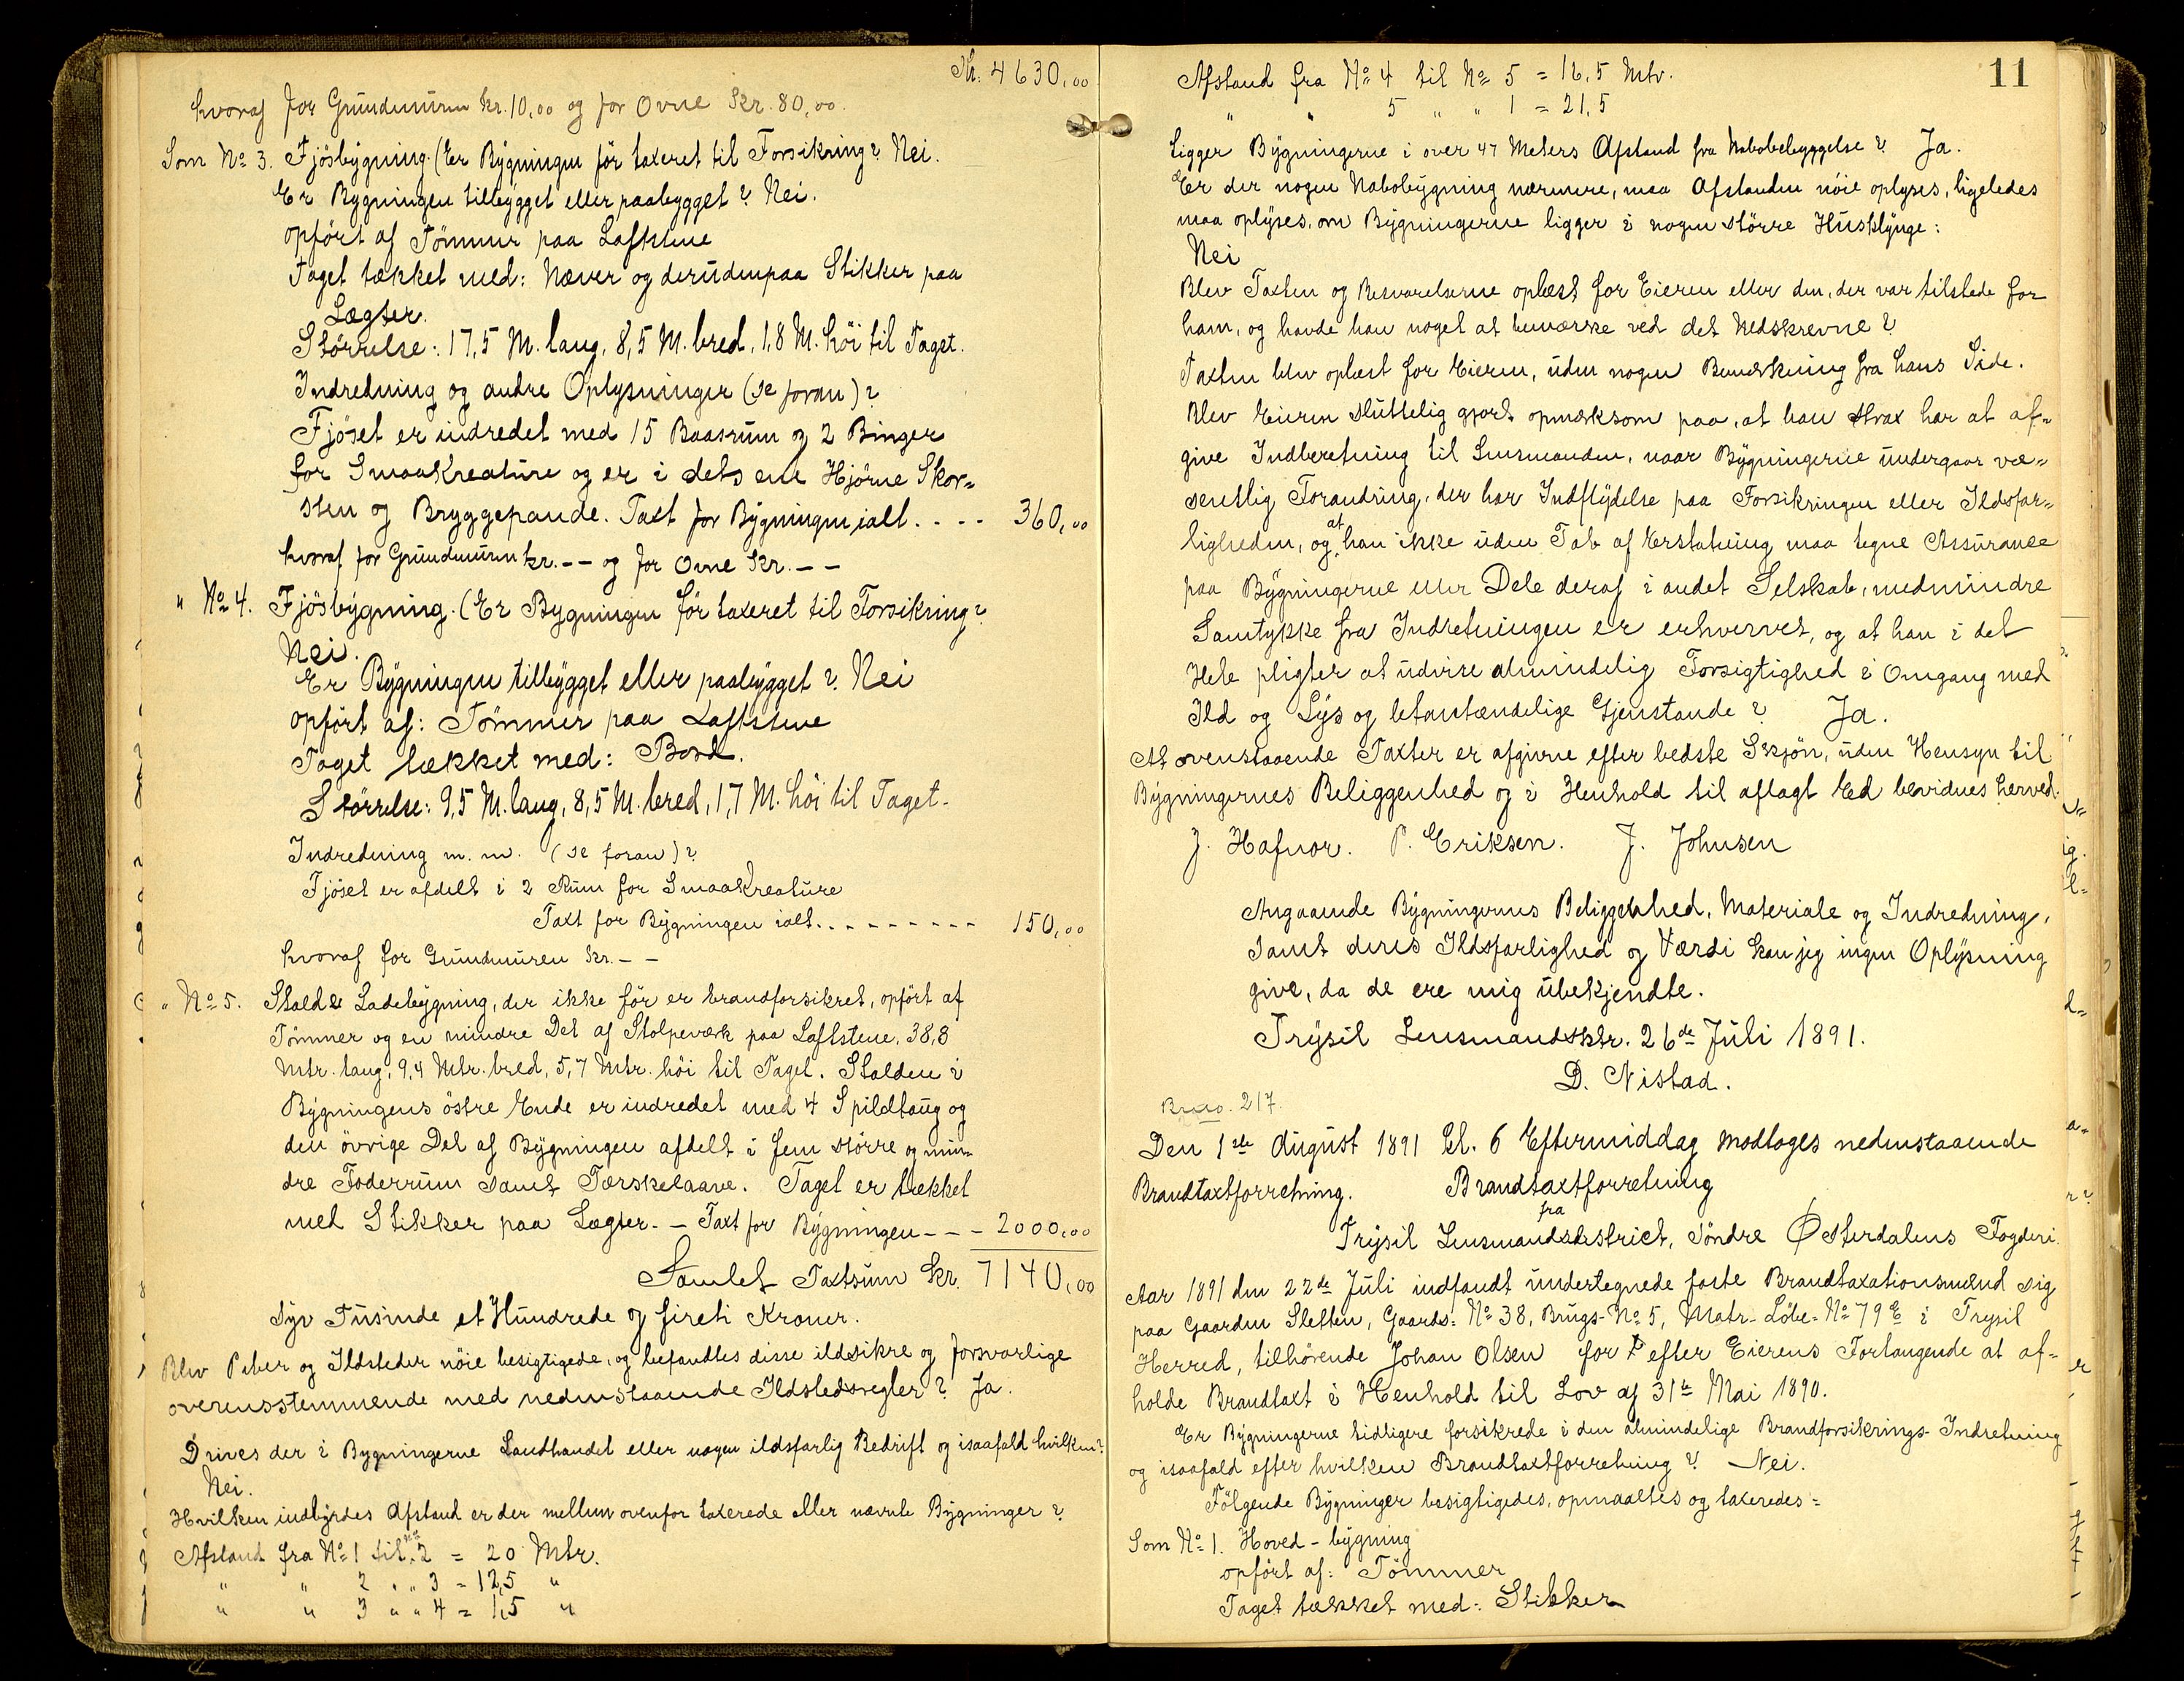 Kr. 4630,00
hvoraf for Grundmuren Kr. 10,00 og for Ovne Kr. 80,00.
Som No 3. Fjösbygning. (Er Bygningen för taxeret til Forsikring? Nei.
Er Bygningen tilbygget eller paabygget? Nei.
opfört af Tömmer paa Loftstene
Taget tækket med: Næver og derudenpaa Stikker paa
Lægter.
Störrelse: 17,5 M. lang, 8,5 M. bred, 1,8 M. höi til Taget.
Indredning og andre Oplysninger (se foran)?
Fjöset er indredet med 15 Baasrum og 2 Binger
for Smaakreature og er i dets ene Hjörne Skor-
sten og Bryggepande. Taxt for Bygningen ialt .... 360,00
hvoraf for Grundmuren kr. -- og for Ovne Kr. --
" No 4. Fjösbygning. (Er Bygningen för taxeret til Forsikring?
Nei.
Er Bygningen tilbygget eller paabygget? Nei
opfört af: Tömmer paa Loftstene
Taget tækket med: Bord.
Störrelse: 9,5 M. lang, 8,5 M. bred, 1,7 M. höi til Taget.
Indredning m. m. (se foran)?
Fjöset er afdelt i 2 Rum for Smaakreature
Taxt for Bygningen ialt.......... 150,00
hvoraf for Grundmuren Kr. --
" No 5. Stald & Ladebygning, der ikke för er brandforsikret, opfört af
Tömmer og en mindre Del af Stolpeværk paa Loftstene, 38,8
Mtr. lang, 9,4 Mtr. bred, 5,7 Mtr. höi til Taget. Stalden i
Bygningens östre Ende er indredet med 4 Spildtaug og
den övrige Del af Bygningen afdelt i fem större og min-
dre Foderrum samt Tærskelaave. Taget er tækket
med Stikker paa Lægter. - Taxt for Bygningen - - - 2000,00
Samlet Taxtsum Kr. 7140,00
Syv Tusinde et Hundrede og firti Kroner.
Blev Peber og Ildsteder nöie besigtigede, og befandtes disse ildsikre og forsvarlige
overensstemmende med nedenstaaende Ildstedsregler? Ja.
Drives der i Bygningerne Landhandel eller nogen ildsfarlig Bedrift og isaafald hvilken?
Nei.
Hvilken indbyrdes Afstand er der mellem ovenfor taxerede eller nævnte Bygninger?
Afstand fra No 1 til No 2 = 20 Mtr.
" " 2 " " 3 = 12,5 "
" " 3 " " 4 = 1,5 "
11
Afstand fra No 4 til No 5 = 16,5 Mtr.
" " 5 " " 1 = 21,5
Ligger Bygningerne i over 47 Meters Afstand fra Nabobebyggelse? Ja.
Er der nogen Nabobygning nærmere, maa Afstanden nöie oplyses, ligeledes
maa oplyses, om Bygningerne ligger i nogen större Husklynge:
Nei
Blev Taxten og Besvarelserne oplæst for Eieren eller den, der var tilstede for
ham, og havde han noget at bemærke ved det Nedskrevne?
Taxten blev oplæst for Eieren, uden nogen Bemærkning fra hans Side.
Blev Eieren sluttelig gjort opmærksom paa, at han strax har at af-
give Indberetning til Lensmanden, naar Bygningerne undergaar væ-
sentlig Forandring, der har Indflydelse paa Forsikringen eller Ildsfar-
ligheden, og at han ikke uden Tab af Erstatning maa tegne Assurance
paa Bygningerne eller Dele deraf i andet Selskab, medmindre
Samtykke fra Indretningen er erhvervet, og at han i det
Hele pligter at udvise almindelig Forsigtighed i Omgang med
Ild og Lys og letantændelige Gjenstande? Ja.
At ovenstaaende Taxter er afgivne efter bedste Skjön, uden Hensyn til
Bygningernes Beliggenhed og i Henhold til aflagt Ed bevidnes herved.
J. Hafnor. P. Eriksen. J. Johnsen
Angaaende Bygningernes Beliggenhed, Materiale og Indredning,
samt deres Ildsfarlighed og Værdi kan jeg ingen Oplysning
give, da de ere mig ubekjendte.
Trysil Lensmandsktr. 26de Juli 1891.
D. Nistad.
217.
Den 1ste August 1891 Kl. 6 Eftermiddag modtoges nedenstaaende
Brandtaxtforretning. Brandtaxtforretning
fra
Trysil Lensmandsdistrict, Söndre Østerdalens Fogderi.
Aar 1891 den 22de Juli indfandt undertegnede faste Brandtaxationsmænd sig
paa Gaarden Sletten, Gaards-No 38, Brugs-No 5, Matr.-Löbe-No 79 i Trysil
Herred, tilhörende Johan Olsen for efter Eierens Forlangende at af-
holde Brandtaxt i Henhold til Lov af 31te Mai 1890.
Er Bygningerne tidligere forsikrede i den almindelige Brandforsikrings-Indretning
og isaafald efter hvilken Brandtaxtforretning? Nei.
Fölgende Bygninger besigtigedes, opmaaltes og taxeredes:
Som No 1. Hoved-bygning
opfört af: Tömmer
Taget tækket med: Stikker